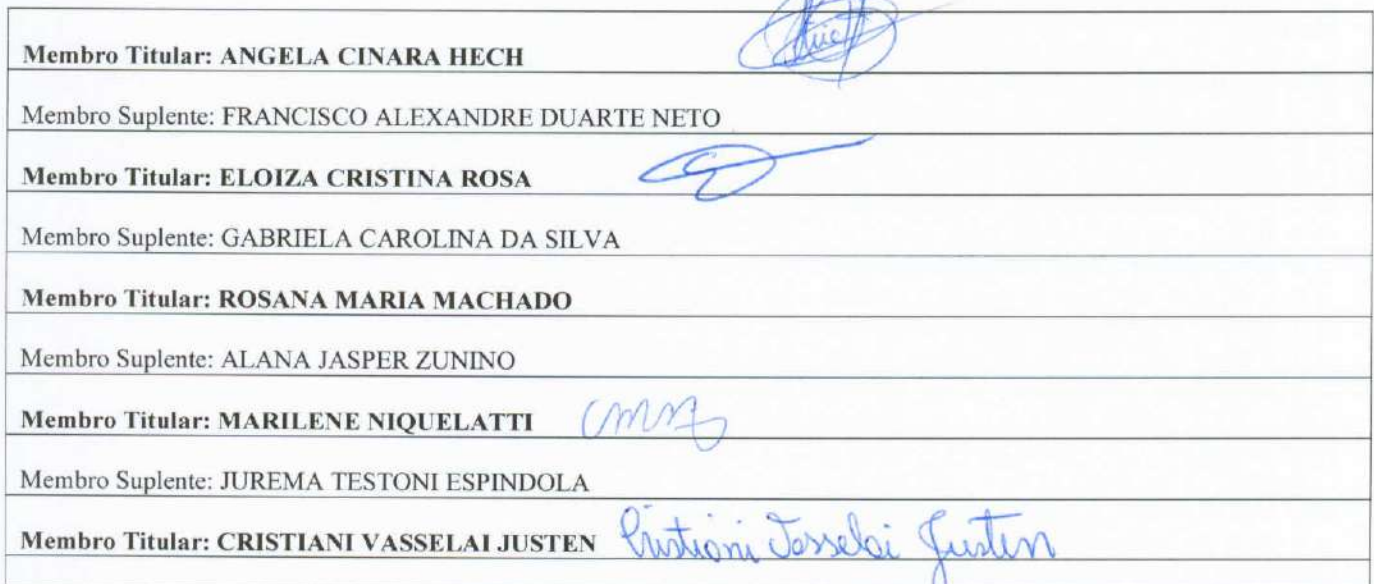 Membro Titular: ANGELA CINARA HECH
Membro Suplente: FRANCISCO ALEXANDRE DUARTE NETO
Membro Titular: ELOIZA CRISTINA ROSA
Membro Suplente: GABRIELA CAROLINA DA SILVA
Membro Titular: ROSANA MARIA MACHADO
Membro Suplente: ALANA JASPER ZUNINO
Membro Titular: MARILENE NIQUELATTI
Membro Suplente: JUREMA TESTONI ESPINDOLA
Membro Titular: CRISTIANI VASSELAI JUSTEN Cristiani Vasselai Justen